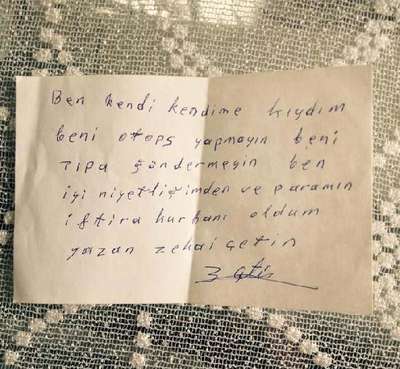 Ben kendi kendime kıydım
beni otops yapmayın beni
Tıpa göndermeyin ben
iyi niyetliğimden ve paramın
iftira kurbanı oldum
yazan zekai çetin